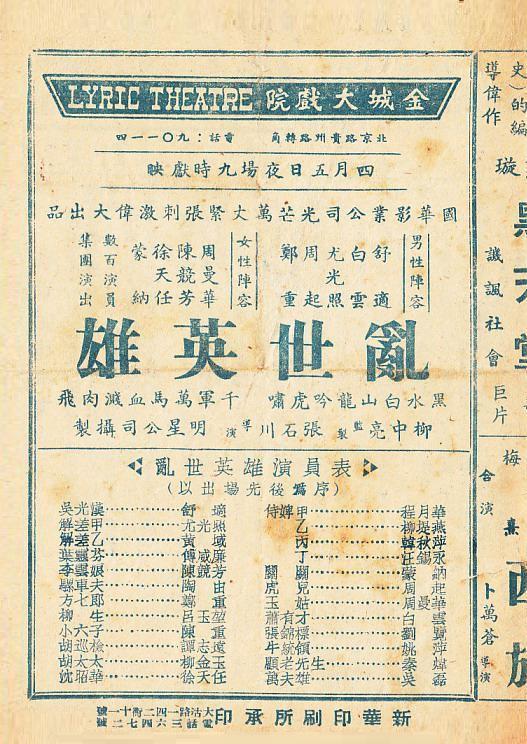 金城大戲院 LYRIC THEATRE
北京路貴州路轉角 電話：九〇一一四
四月五日夜場九時獻映
國華影業公司光芒萬丈緊張刺激偉大出品
男性陣容
舒適
白雲
尤光照
周起
鄭重
女性陣容
周曼華
陳競芳
徐天任
蒙納
數百演員
集團演出
亂世英雄
黑水白山龍吟虎嘯 千軍萬馬血濺肉飛
柳中亮監製 張石川導演 明星公司攝製
亂世英雄演員表
(以出場先後爲序)
侍婢甲 程月華
乙 柳堤燕
丙 韓秋萍
丁 汪錫永
蒙納
虎兒 周起
玉姑 周曼華
蕭有才 白雲
張錦標 劉
牛統領 姚萍
顧老先生 秦
萬夫雄 吳磊
吳光漢 舒適
解差甲 尤光照
解差乙 黃域
傅威廉
陳競芳
陶由
鄭重
呂玉堃
陳重
譚志遠
柳金玉
徐天任
新華印刷所承印 大沽路一四二衖十一號
電話三六四七二號
史)的編
導偉作
璇
黑天堂
譏諷社會巨片
梅熹
合演
西施
卜萬蒼導演